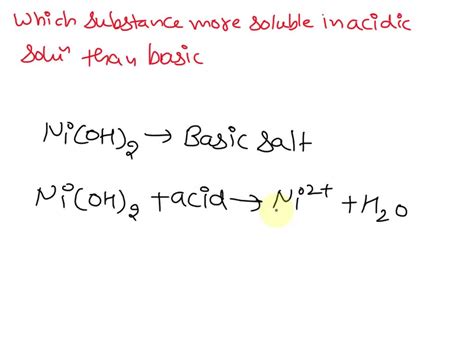 Which substance more soluble in acidic
soluⁿ than basic
Ni(OH)₂ → Basic salt
Ni(OH)₂ + acid → Ni²⁺ + H₂O